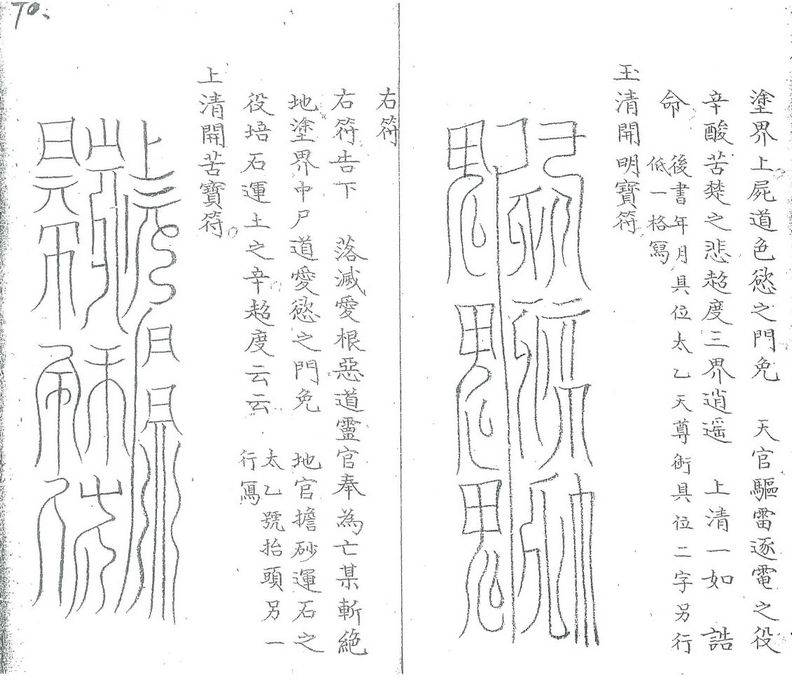 70.
塗界上屍道色慾之門免　天官驅雷逐電之役
辛酸苦楚之悲超度三界逍遥　上清一如　誥
命　後書年月具位太乙天尊術具位二字另行
低一格寫
玉清開明寶符
右符
右符告下　落滅愛根惡道靈官奉為亡某斬絶
地塗界中尸道愛慾之門免　地官擔砂運石之
役培石運土之辛超度云云　太乙號抬頭另一
行寫
上清開苦寶符